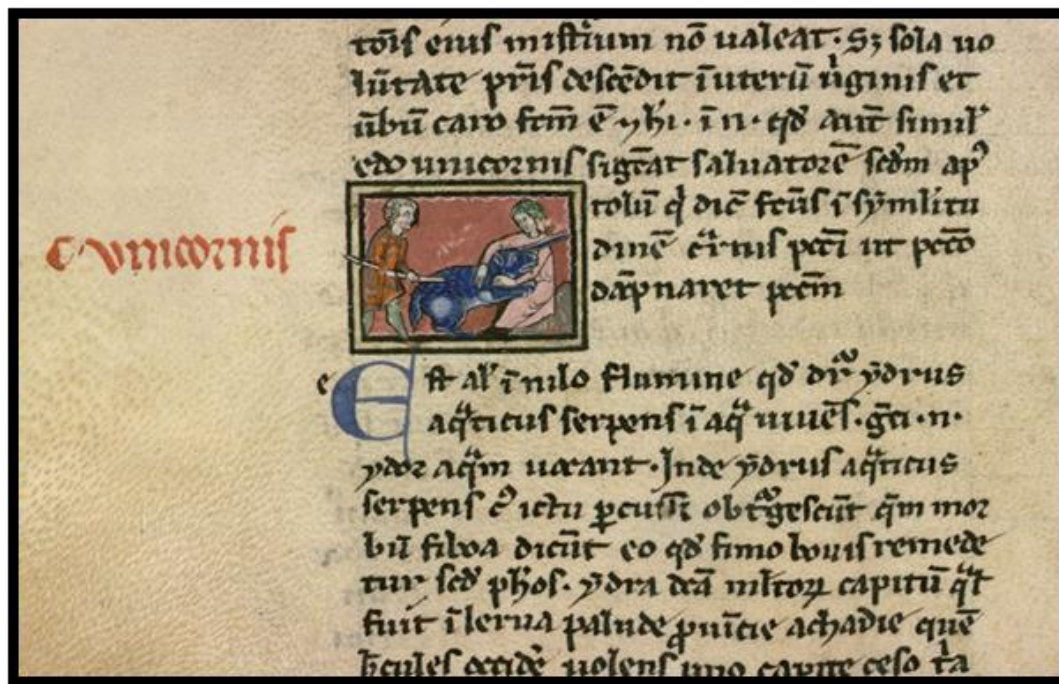 tõis eius mistĩum nõ ualeat · Sȝ sola uo
lũtate pr̃is descẽdit ĩ uterũ ũginis et
ũbũ caro fcm̃ ẽ · yhi · ĩ n · qd̃ aut̃ simil
edo unicornis sigc̃at saluatorẽ scd̃m ap
tolũ q̇ dic̃ fcũs ĩ sỹmlitu
dinẽ c̃rnis pcc̃i ut pcc̃o
dãpnaret pcc̃m
unicornis
e
Est al ĩ nilo flumine qd̃ dr̃ ẏdrus
aq̃ticus serpens ĩ aq̃ uiuẽs · gc̃i · n ·
ydor aq̃m uocant · Inde ẏdrus aq̃ticus
serpens c ictu ꝑcussi obtgescũt qm mor
bũ filboa dicũt eo qd̃ fimo bouis remede
tur scd̃ ph̃os · ydra dcã mltoꝝ capitũ q̃l
fuit ĩ lerna palude ꝓuĩcie achadie quẽ
h̃cules occidẽ uolens uno capite ceso